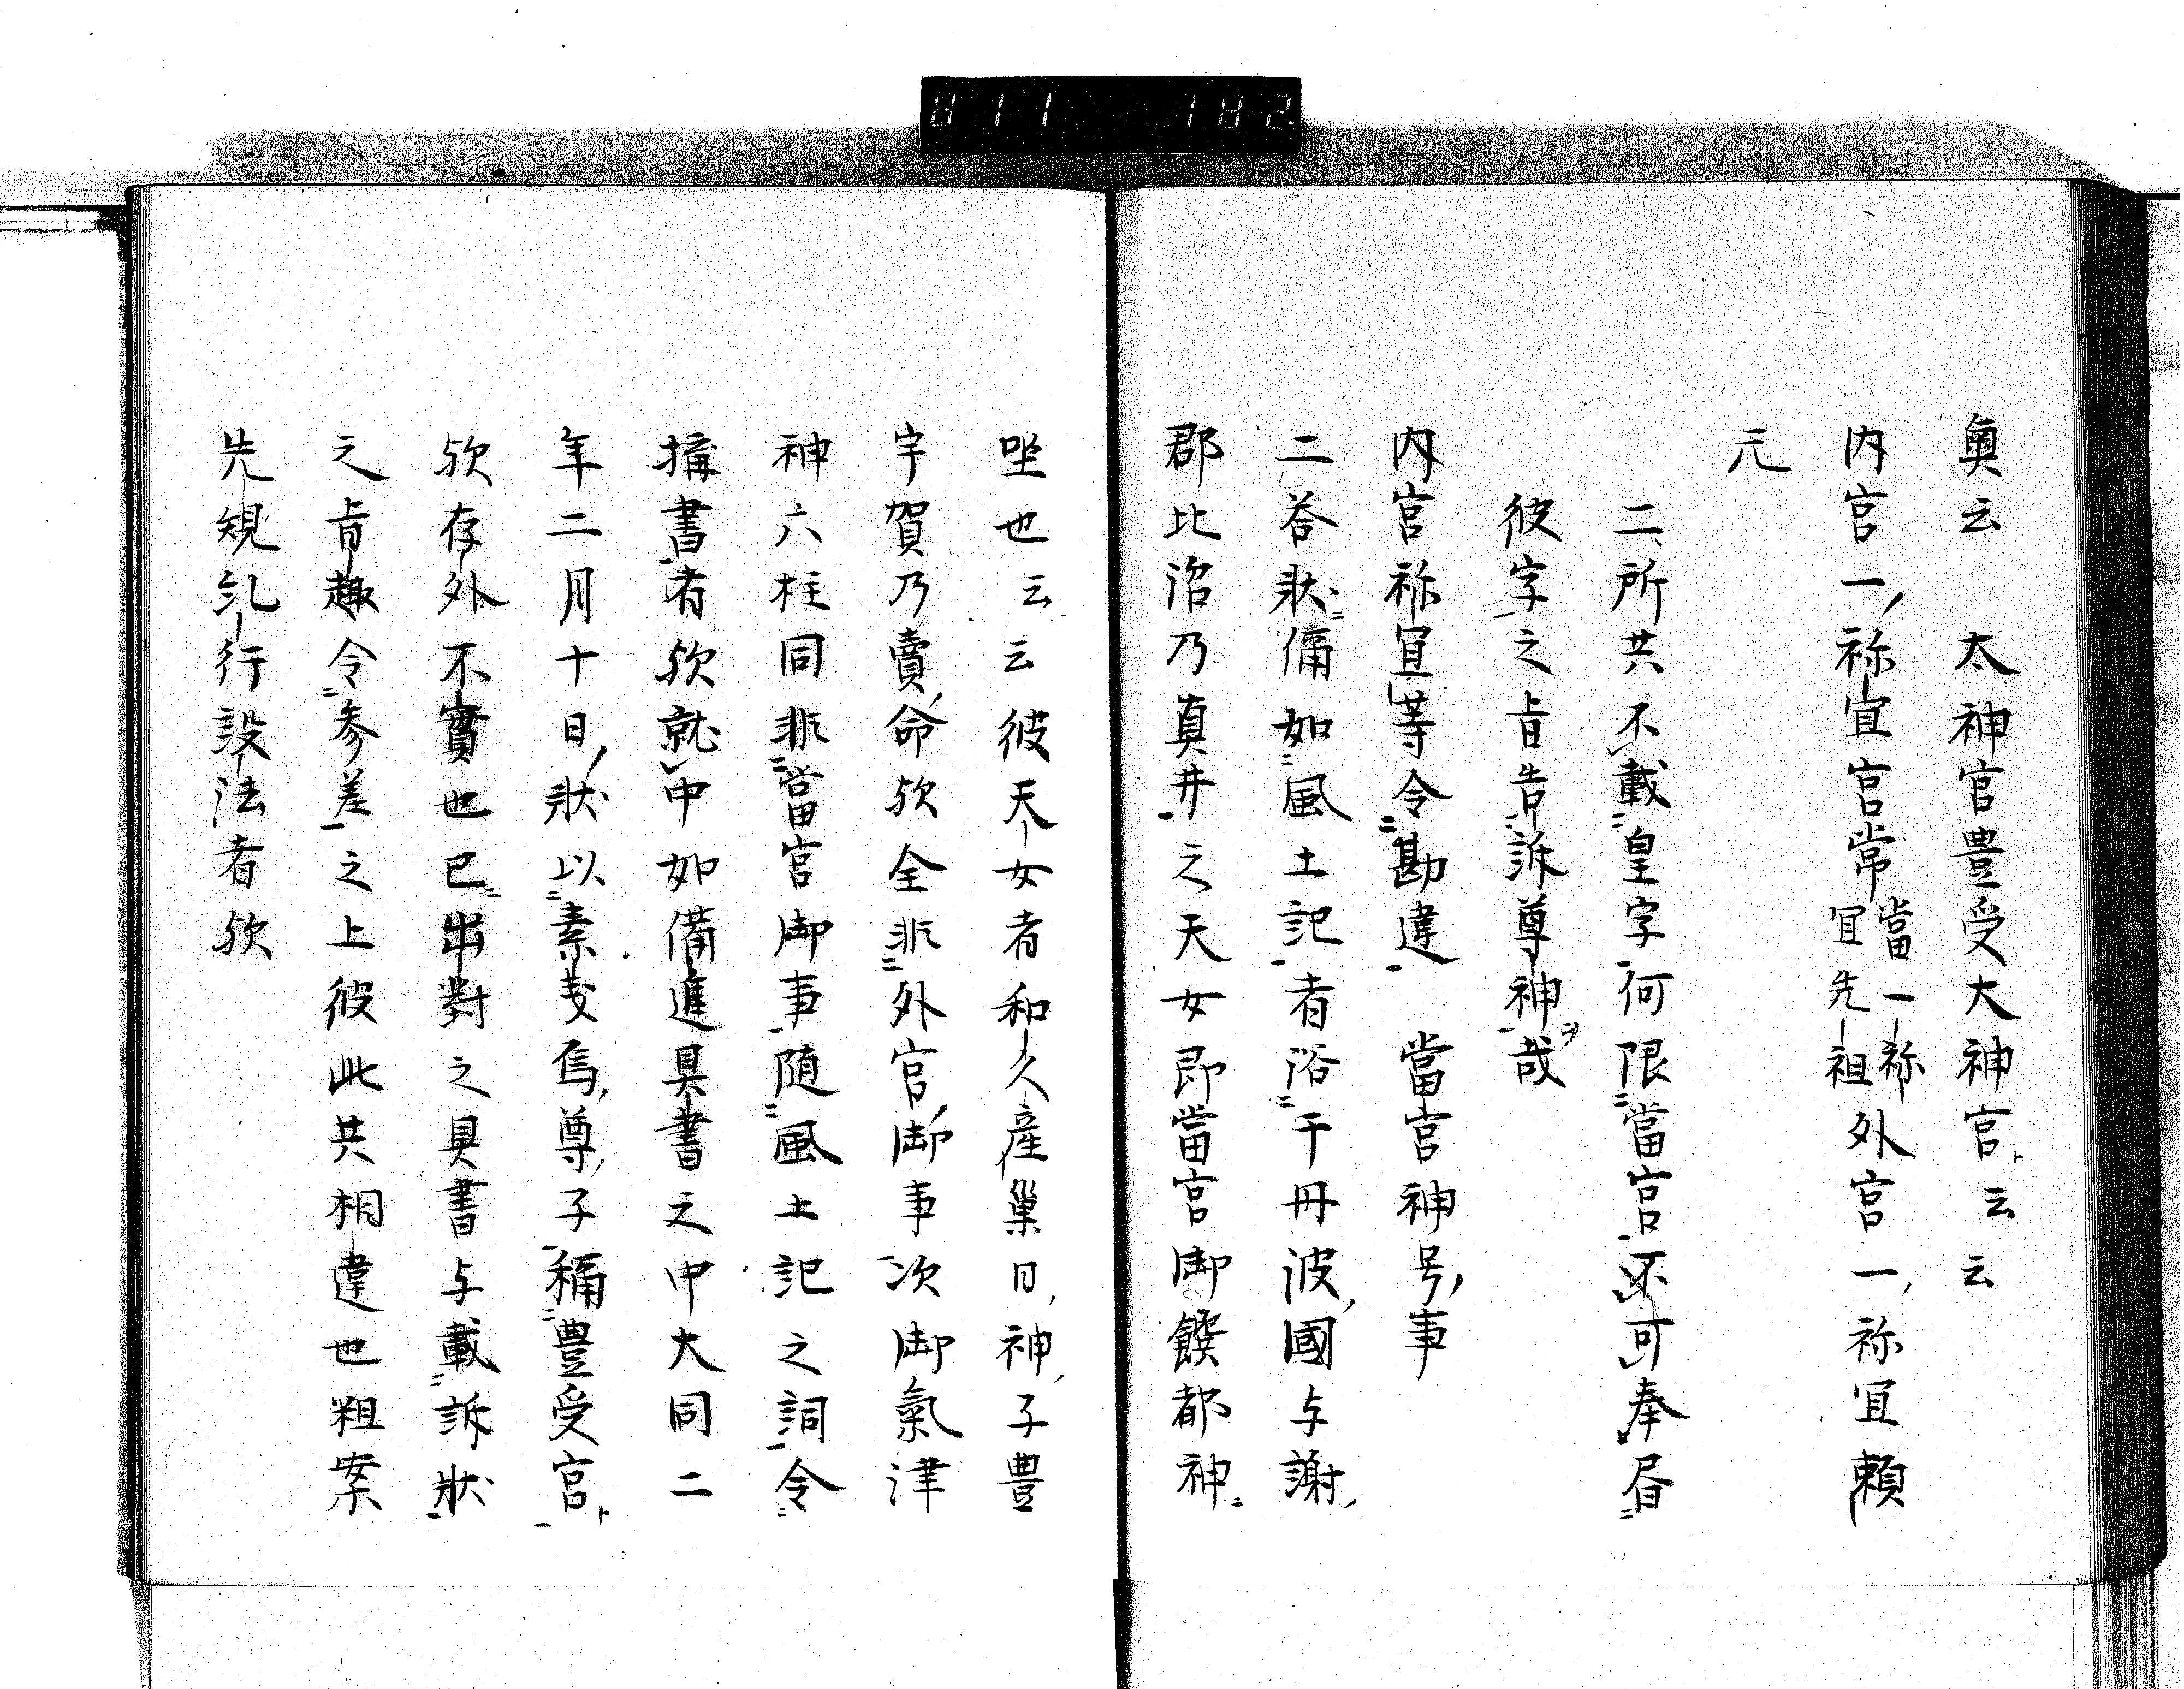 811 182
奥云　太神官豊受大神宮云云
内宮一祢宜宮常當一祢宜先祖外宮一祢宜頼
元
二所共不載皇字何限當宮不可奉𫞕
彼字之旨告訴尊神哉
内宮祢宜等令勘違　當宮神号事
二荅状偁如風土記者浴于丹波國与謝
郡比沼乃真井之天女即當宮御饌都神
坐也云云彼天女者和久産巣日神子豊
宇賀乃賣命欤全非外宮御事次御氣津
神六柱同非當宮御事随風土記之詞令
搆書者欤就中如備進具書之中大同二
年二月十日状以素戔烏尊子稱豊受宮
欤存外不實也已出對之具書与載訴状
之旨趣令参差之上彼此共相違也粗案
先規糺行設法者欤